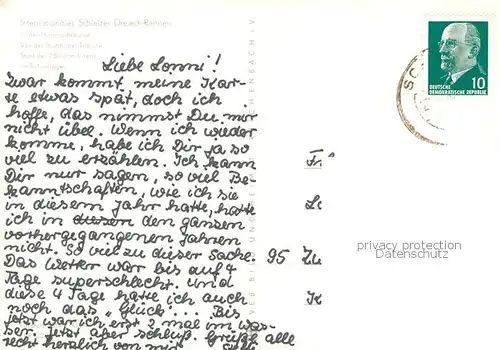 Internationales Schleizer Dreieck-Rennen
Liebe Lonni!
Zwar kommt meine Kar-
te etwas spät, doch ich
hoffe, das nimmst Du mir
nicht übel. Wenn ich wieder
komme, habe ich Dir ja so
viel zu erzählen. Ich kann
Dir nur sagen, so viel Be-
kanntschaften, wie ich sie
in diesem Jahr hatte, hatte
ich in diesem den ganzen
vorhergegangenen Jahren
nicht. So viel zu dieser Sache.
Das Wetter war bis auf 4
Tage superschlecht. Und
diese 4 Tage hatte ich auch
noch das „Glück"... Bis
jetzt war ich erst 2 mal im was-
ser. Jetzt aber schluß. Grüße alle
recht herzlich von mir
10
DEUTSCHE
DEMOKRATISCHE REPUBLIK
SC
95 Zu
privacy protection
Datenschutz